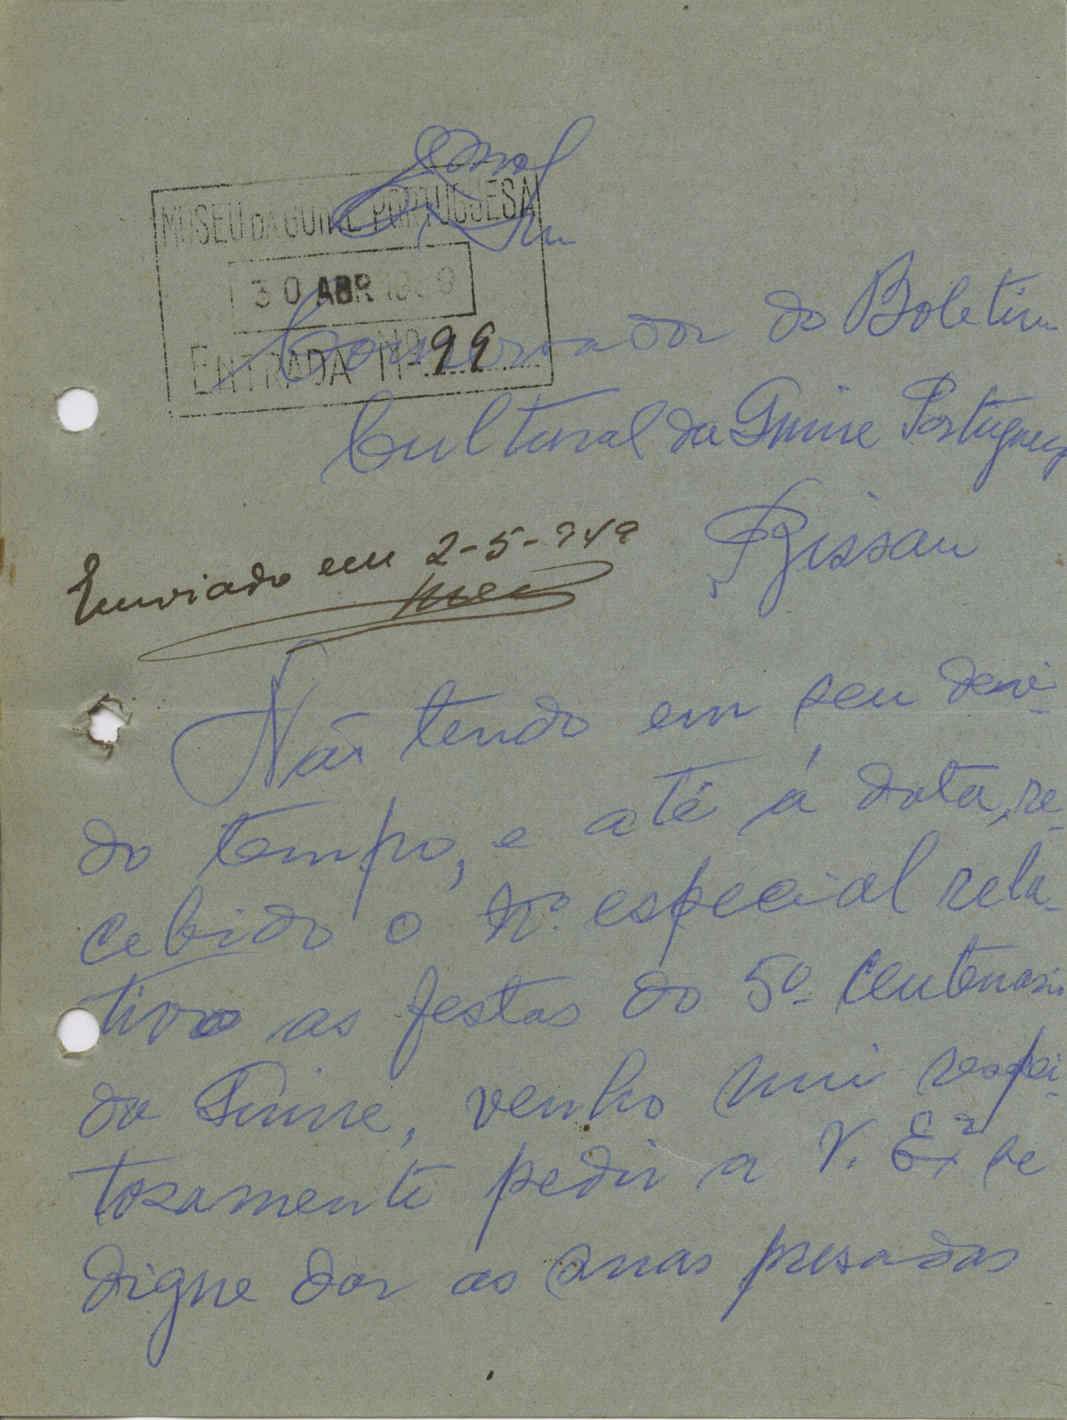 Exmo
Snr.
MUSEU DA GUINÉ PORTUGUESA
30 ABR 1949
ENTRADA Nº 99
Conservador do Boletim
Cultural da Guine Portuguesa
Bissau
Enviado em 2-5-949
Não tendo em seu devi-
do tempo, e até á data, re-
cebido o nº. especial rela-
tivo as festas do 5º. Centenario
da Guine, venho mui respei-
tosamente pedir a V. Exª se
digne dar as suas presadas